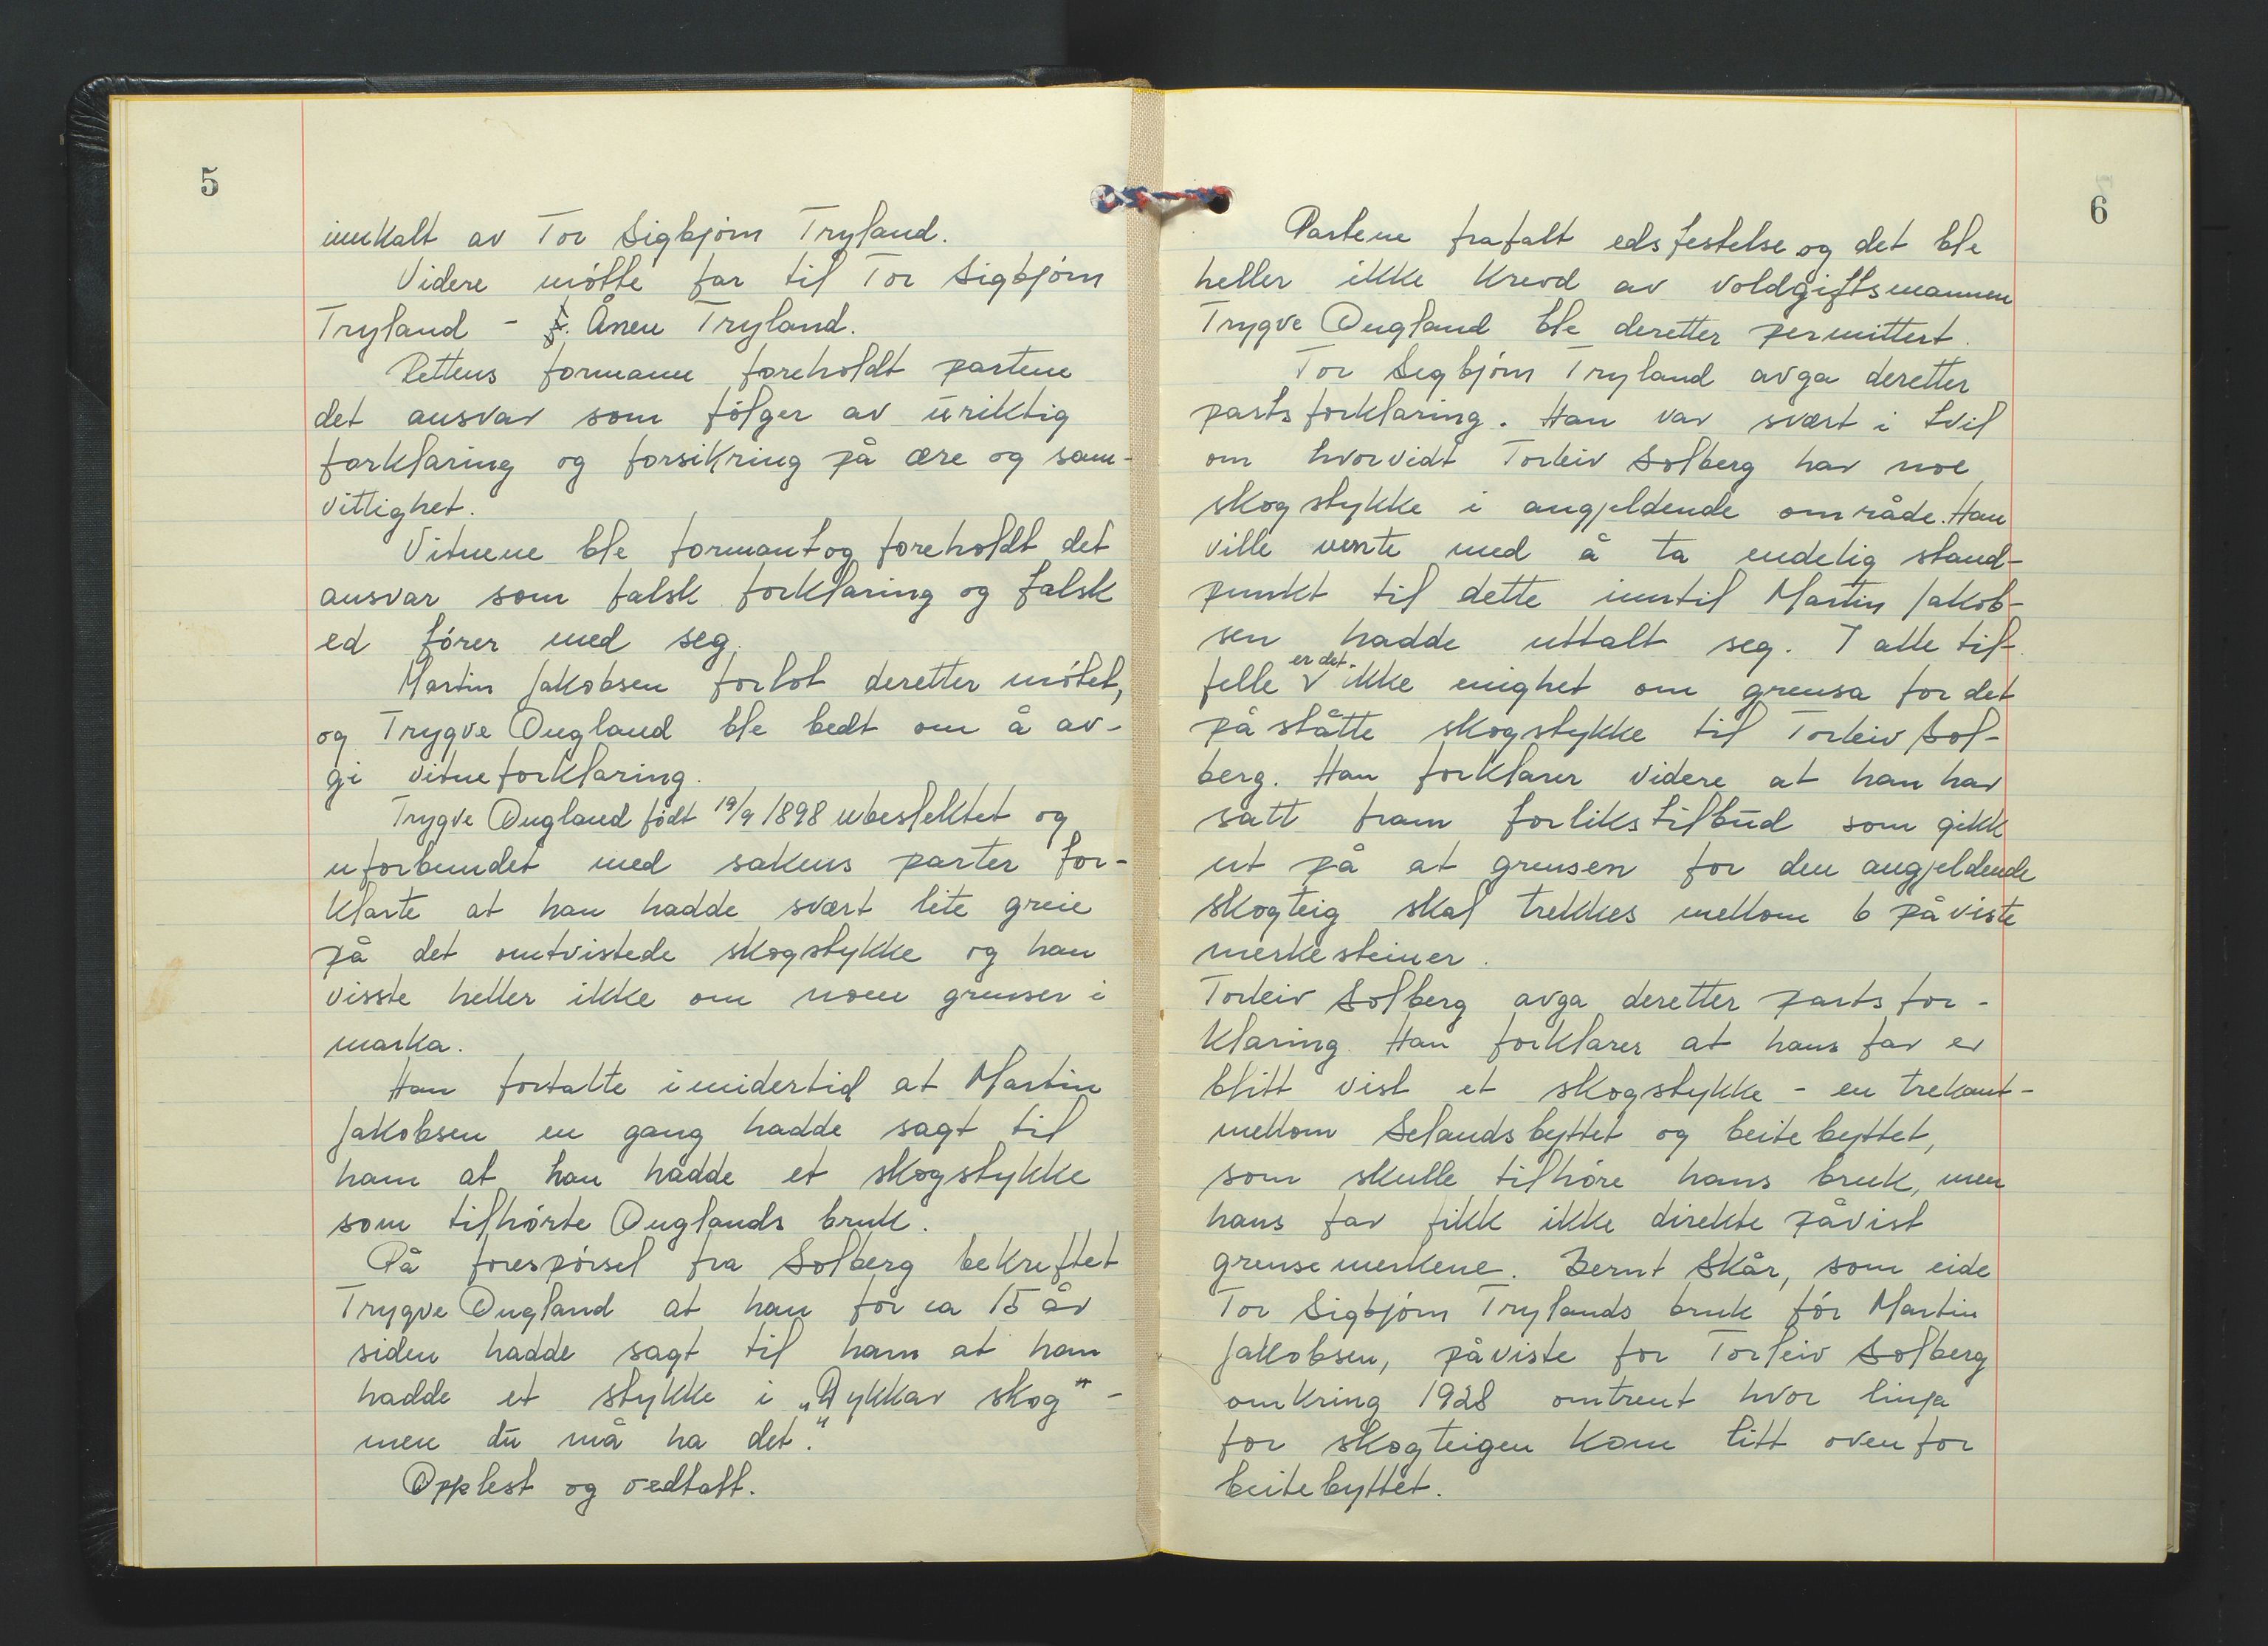 5
innkalt av Tor Sigbjørn Tryland.
Videre møtte far til Tor Sigbjørn
Tryland - Ånen Tryland.
Rettens formann foreholdt partene
det ansvar som følger av uriktig
forklaring og forsikring på ære og sam-
vittighet.
Vitnene ble formant og foreholdt det
ansvar som falsk forklaring og falsk
ed fører med seg.
Martin Jakobsen forlot deretter møtet,
og Trygve Ougland ble bedt om å av-
gi vitneforklaring.
Trygve Ougland født 19/9 1898 ubeslektet og
uforbundet med sakens parter for-
klarte at han hadde svært lite greie
på det omtvistede skogstykke og han
visste heller ikke om noen grenser i
marka.
Han fortalte imidertid at Martin
Jakobsen en gang hadde sagt til
ham at han hadde et skogstykke
som tilhørte Ouglands bruk.
På forespørsel fra Solberg bekreftet
Trygve Ougland at han for ca 15 år
siden hadde sagt til ham at han
hadde et stykke i „Dykkar skog" -
men du må ha det."
Opplest og vedtatt.
6
Partene frafalt edsfestelse og det ble
heller ikke krevd av voldgiftsmannen
Trygve Ougland ble deretter permittert.
Tor Sigbjørn Tryland avga deretter
partsforklaring. Han var svært i tvil
om hvorvidt Torleiv Solberg har noe
skogstykke i angjeldende område. Han
ville vente med å ta endelig stand-
punkt til dette inntil Martin Jakob-
sen hadde uttalt seg. I alle til-
felle er det ikke enighet om grensa for det
påståtte skogstykke til Torleiv Sol-
berg. Han forklarer videre at han har
satt fram forlikstilbud som gikk
ut på at grensen for den angjeldende
skogteig skal trekkes mellom 6 påviste
merkesteiner.
Torleiv Solberg avga deretter partsfor-
klaring. Han forklarer at hans far er
blitt vist et skogstykke - en trekant -
mellom Selandsbyttet og beitebyttet,
som skulle tilhøre hans bruk, men
hans far fikk ikke direkte påvist
grensemerkene. Bernt Skår, som eide
Tor Sigbjørn Trylands bruk før Martin
Jakobsen, påviste for Torleiv Solberg
omkring 1928 omtrent hvor linja
for skogteigen kom litt ovenfor
beitebyttet.